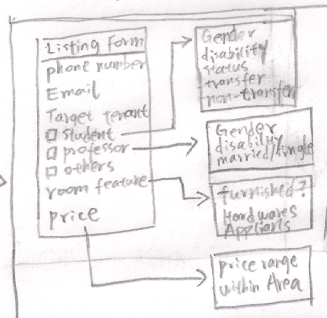 Listing Form
phone number
Email
Target tenant
student
professor
others
room feature
price
Gender
disability
status
transfer
non-transfer
Gender
disability
married/single
furnished?
Hardwares
Applians
price range
within Area